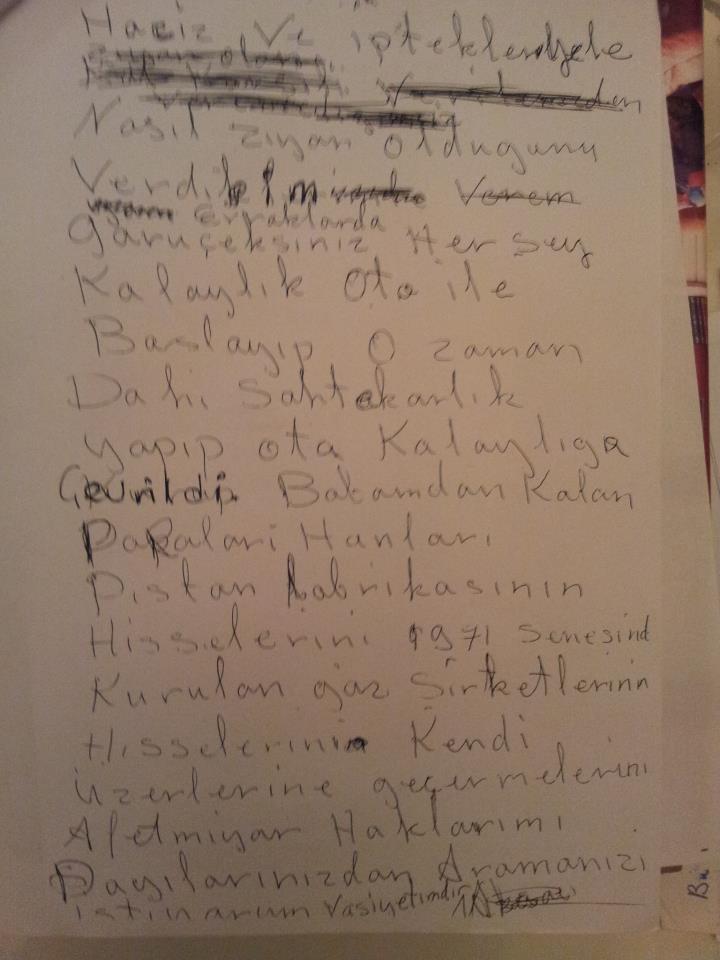 Haciz Ve ipteklerdede
Nasıl ziyan oldugunu
Verdik
Evraklarda
Garuçeksiniz Her sey
Kalaylık Oto ile
Baslayıp O zaman
Dahi Sahtekarlık
yapıp oto Kalaylıga
Çevrildi Babamdan Kalan
Paraları Hanları
Pistan fabrikasının
Hisselerini 1971 senesind
Kurulan gaz Şirketlerinin
Hisselerinin Kendi
üzerlerine geçirmelerini
Afetmiyor Haklarımı
Dayılarınızdan Aramanızı
istiiyorum Vasiyetimdir